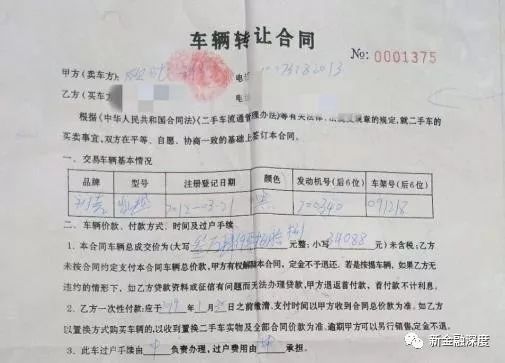 车辆转让合同
No: 0001375
甲方(卖车方):
乙方(买车方
根据《中华人民共和国合同法》《二手车流通管理办法》等有关法律、法规及规章的规定,就二手车的
买卖事宜,双方在平等、自愿、协商一致的基础上签订本合同。
一、交易车辆基本情况
品牌 型号 注册登记日期 颜色 发动机号(后6位) 车架号(后6位)
2012-03-21 700340 091218
二、车辆价款、付款方式、时间及过户手续
1. 本合同车辆总成交价为(大写 元整;小写 34088 元)未含税;乙方
未按合同约定支付本合同车辆总价款,甲方有权解除本合同,定金不予退还。若是按揭车辆,如果乙方无
违约的情形下,如乙方贷款资料或征信有问题而无法办理贷款,甲方退返首付款,首付款不计利息。
2. 乙方一次性付款:应于 年 1 月 日之前缴清,支付时间以甲方收到合同总价款为准。如乙方
以置换方式购买车辆的,以收到置换二手车实物及全部合同价款为准。逾期甲方可以另行销售,定金不退。
3. 此车过户手续由 负责办理,过户费用由 承担。
新金融深度